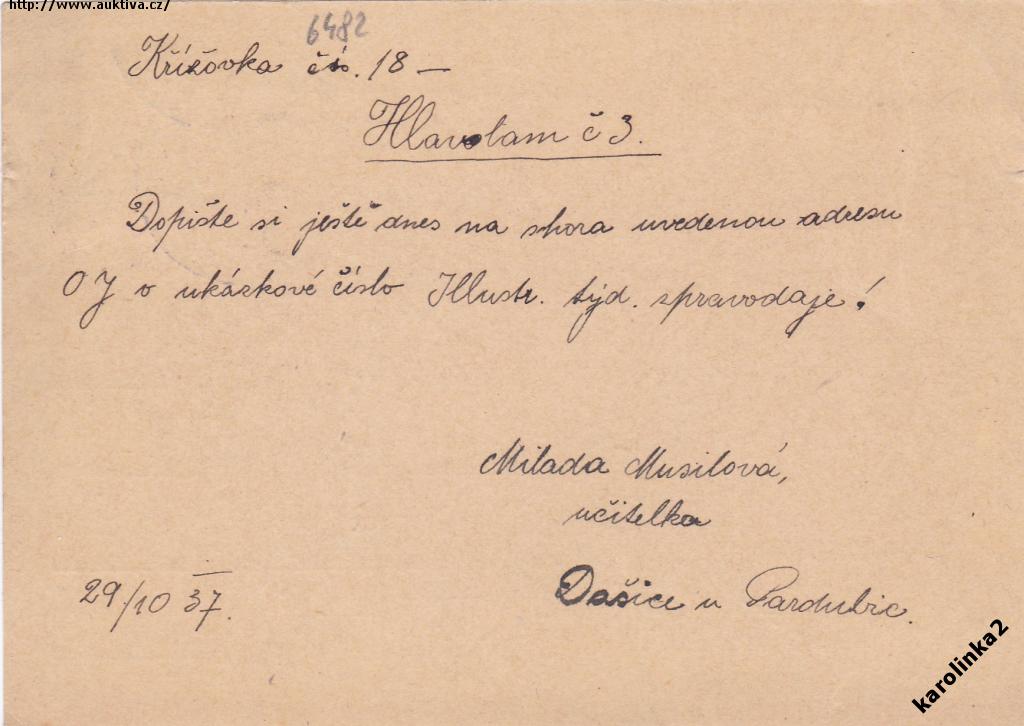 http://www.auktiva.cz/
6482
Křížovka čís. 18 —
Hlavolam č 3.
Dopište si ještě dnes na shora uvedenou adresu
O J o ukázkové číslo Illustr. týd. zpravodaje!
Milada Musilová,
učitelka
Dašice u Pardubic.
29/10 37.
karolinka2